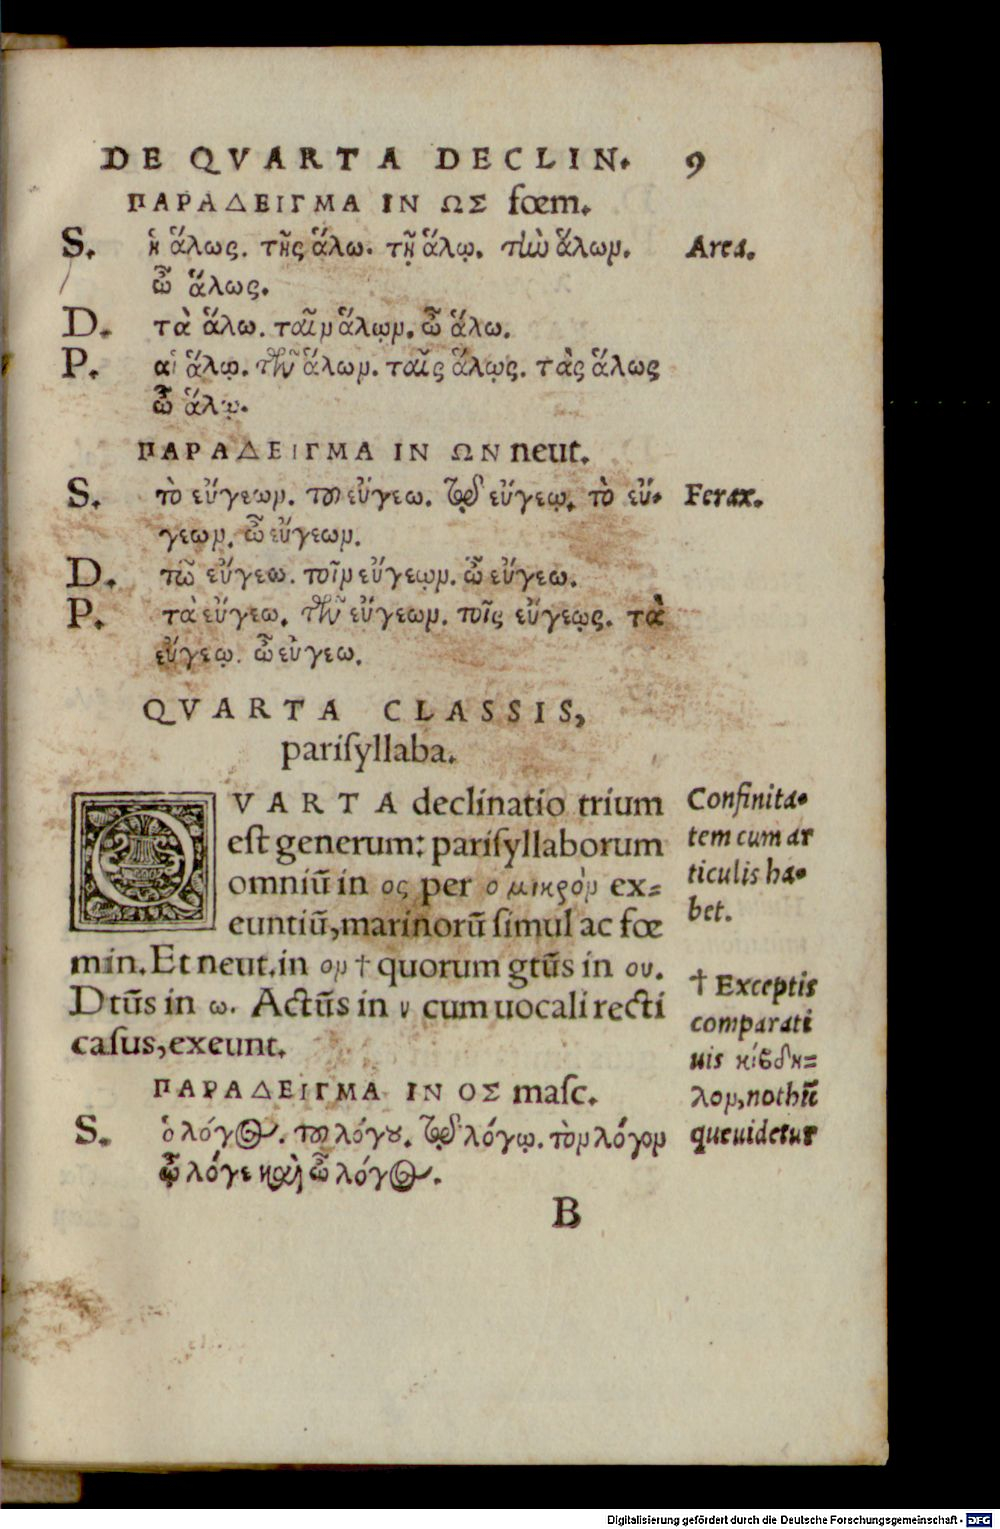 DE QVARTA DECLIN. 9
ΠΑΡΑΔΕΙΓΜΑ IN ΩΣ fœm.
S. ἡ ἅλως. τῆς ἅλω. τῇ ἅλῳ. τὴν ἅλων. Area.
ὦ ἅλως.
D. τὰ ἅλω. ταῖν ἅλῳν. ὦ ἅλω.
P. αἱ ἅλῳ. τῶν ἅλων. ταῖς ἅλῳς. τὰς ἅλως
ὦ ἅλῳ.
ΠΑΡΑΔΕΙΓΜΑ IN ΩΝ neut.
S. τὸ εὔγεων. τοῦ εὔγεω. τῷ εὔγεῳ. τὸ εὔ- Ferax.
γεων. ὦ εὔγεων.
D. τὼ εὔγεω. τοῖν εὔγεῳν. ὦ εὔγεω.
P. τὰ εὔγεω. τῶν εὔγεων. τοῖς εὔγεῳς. τὰ
εὔγεῳ. ὦ εὔγεω.
QVARTA CLASSIS,
pariſyllaba.
QVARTA declinatio trium
eſt generum: pariſyllaborum
omniũ in ος per ο μικρὸν ex=
euntiũ, marinorũ ſimul ac fœ
min. Et neut. in ον † quorum gtũs in ου.
Dtũs in ω. Actũs in ν cum uocali recti
caſus, exeunt.
Confinita-
tem cum ar
ticulis ha-
bet.
† Exceptis
comparati
uis κίβδη=
λον, nothũ
que uidetur
ΠΑΡΑΔΕΙΓΜΑ IN ΟΣ maſc.
S. ὁ λόγος. τοῦ λόγου. τῷ λόγῳ. τὸν λόγον
ὦ λόγε καὶ ὦ λόγος.
B
Digitalisierung gefördert durch die Deutsche Forschungsgemeinschaft - DFG